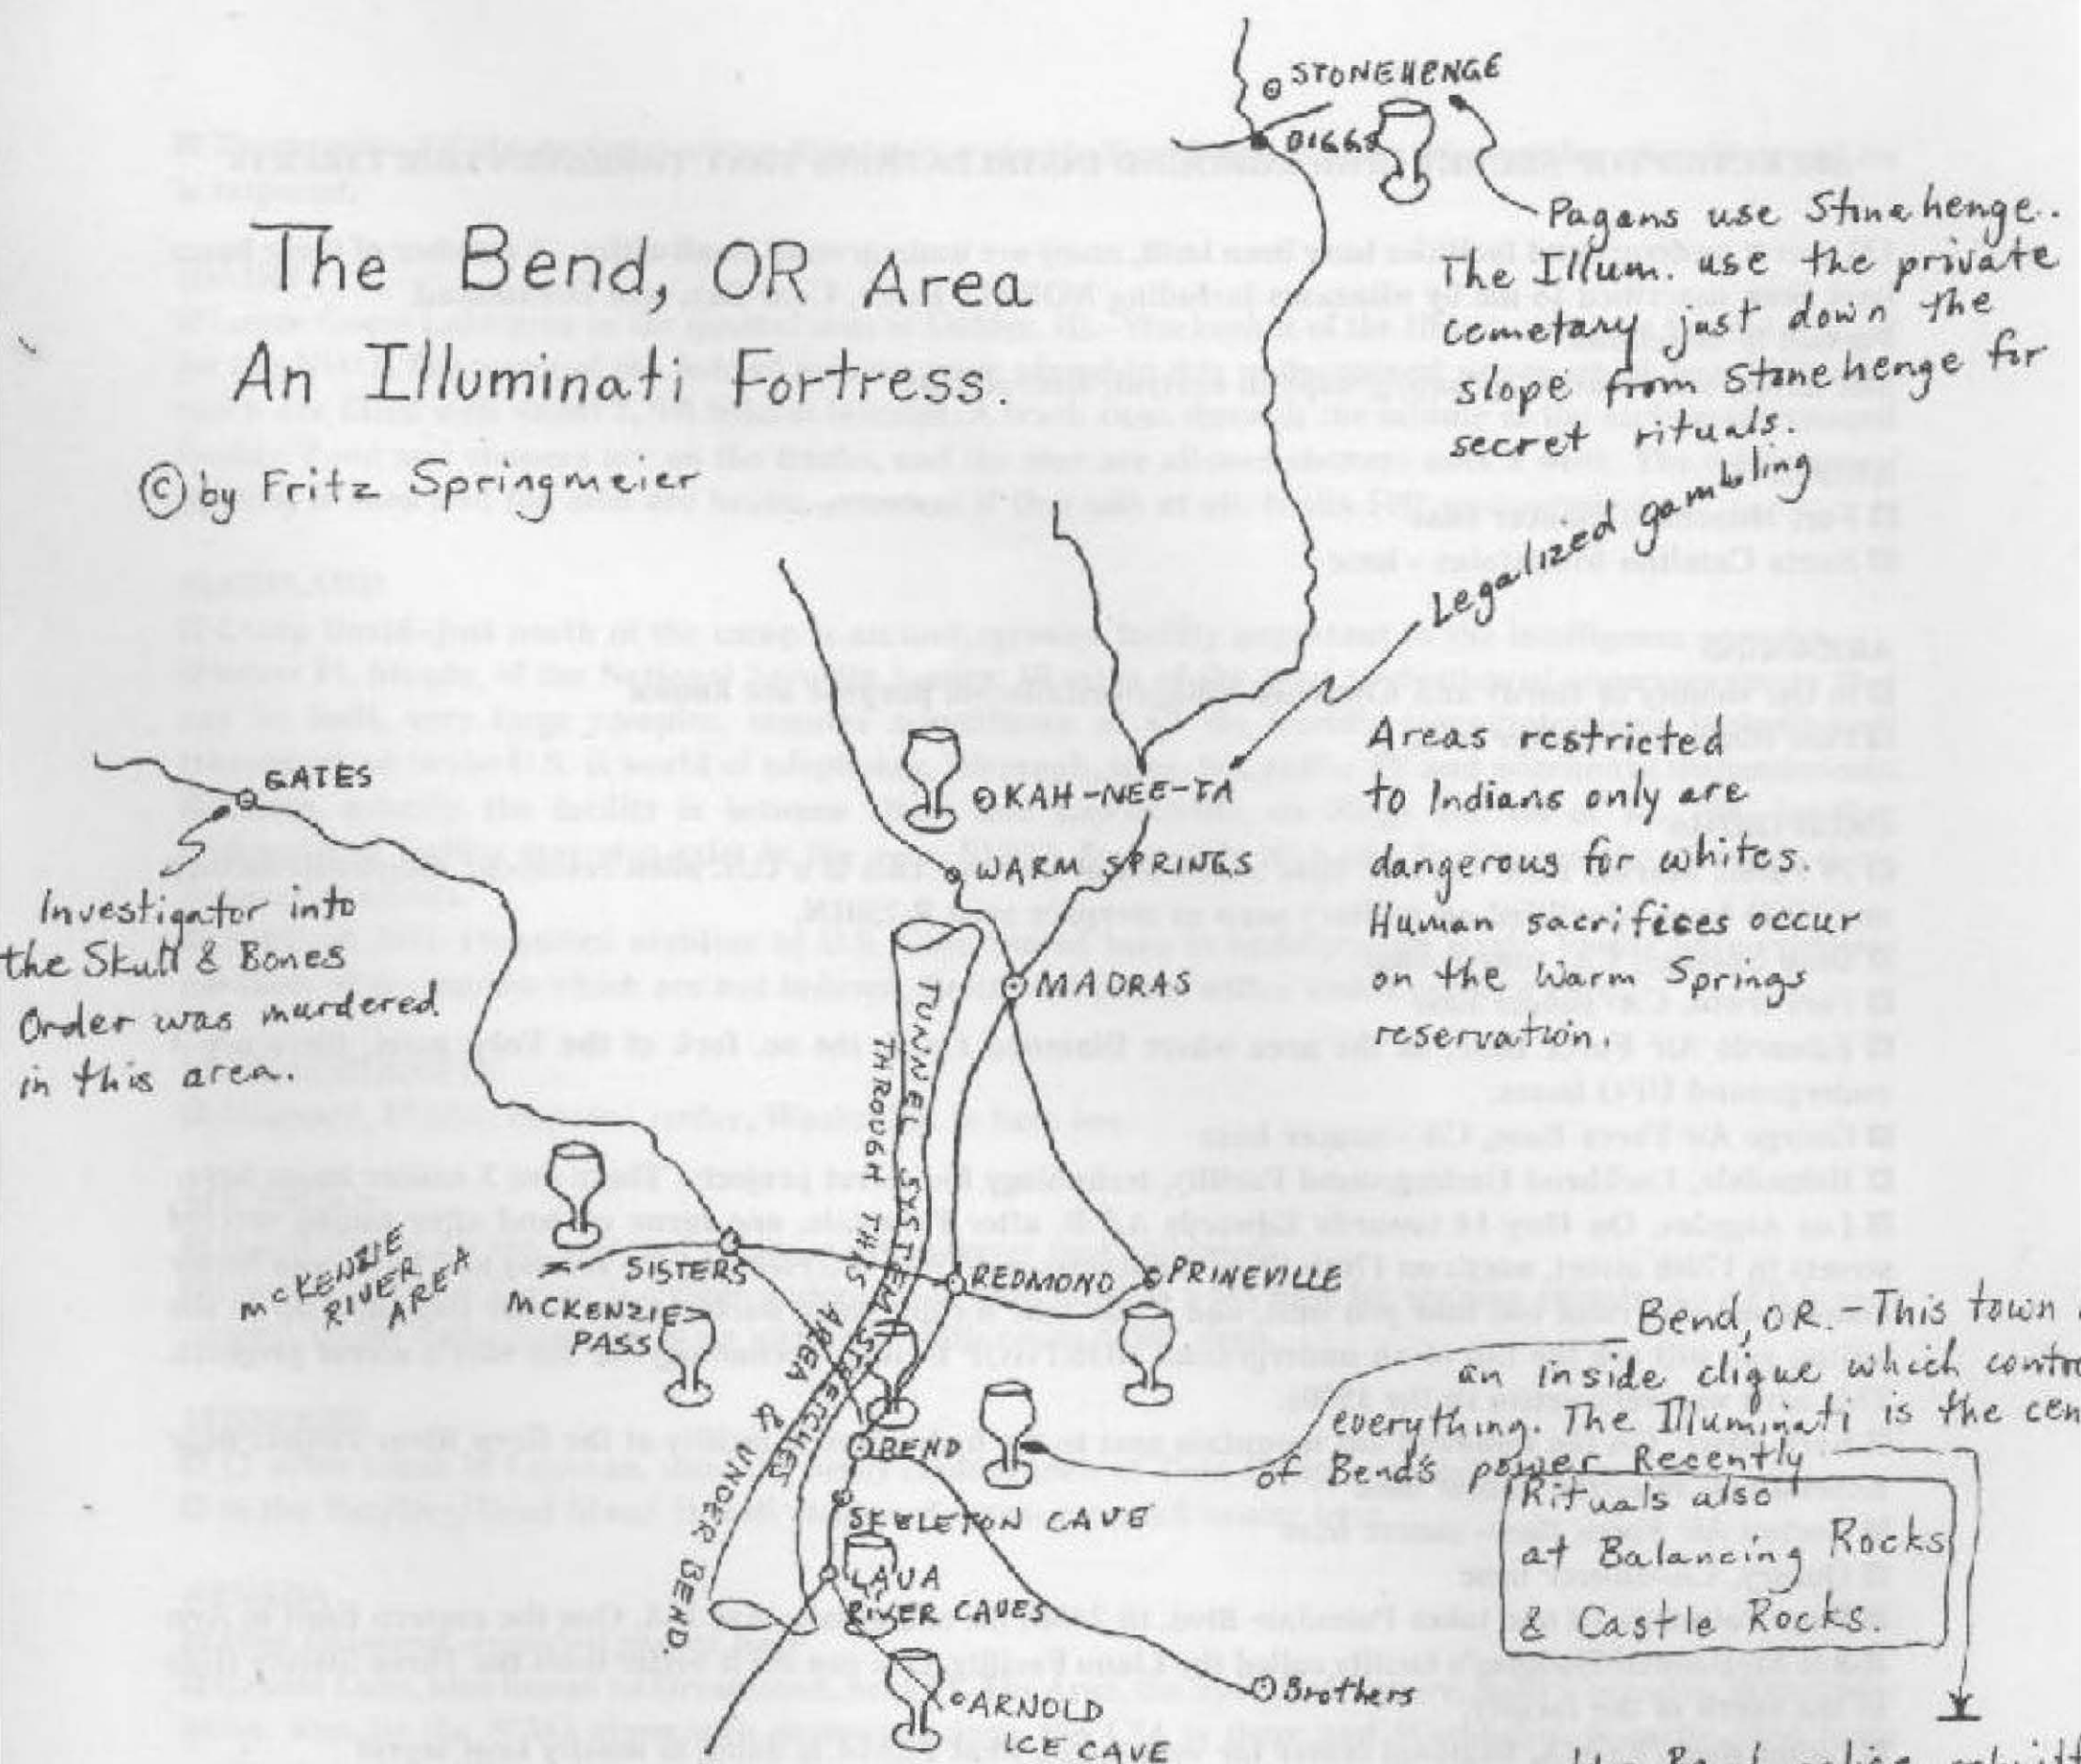 STONEHENGE
The Bend, OR Area
An Illuminati Fortress.
© by Fritz Springmeier
Pagans use Stonehenge.
The Illum. use the private
cemetary just down the
slope from Stonehenge for
secret rituals.
Legalized gambling
GATES
KAH-NEE-TA
WARM SPRINGS
Areas restricted
to Indians only are
dangerous for whites.
Human sacrifices occur
on the Warm Springs
reservation.
Investigator into
the Skull & Bones
Order was murdered
in this area.
MADRAS
TUNNEL SYSTEM STRETCHES
THROUGH THIS AREA & UNDER BEND.
McKENZIE
RIVER
AREA
SISTERS
MCKENZIE
PASS
REDMOND
PRINEVILLE
Bend, OR. - This town
an inside clique which
everything. The Illuminati is the
of Bend's power Recently
Rituals also
at Balancing Rocks
& Castle Rocks.
BEND
SKELETON CAVE
LAVA
RIVER CAVES
Brothers
ARNOLD
ICE CAVE